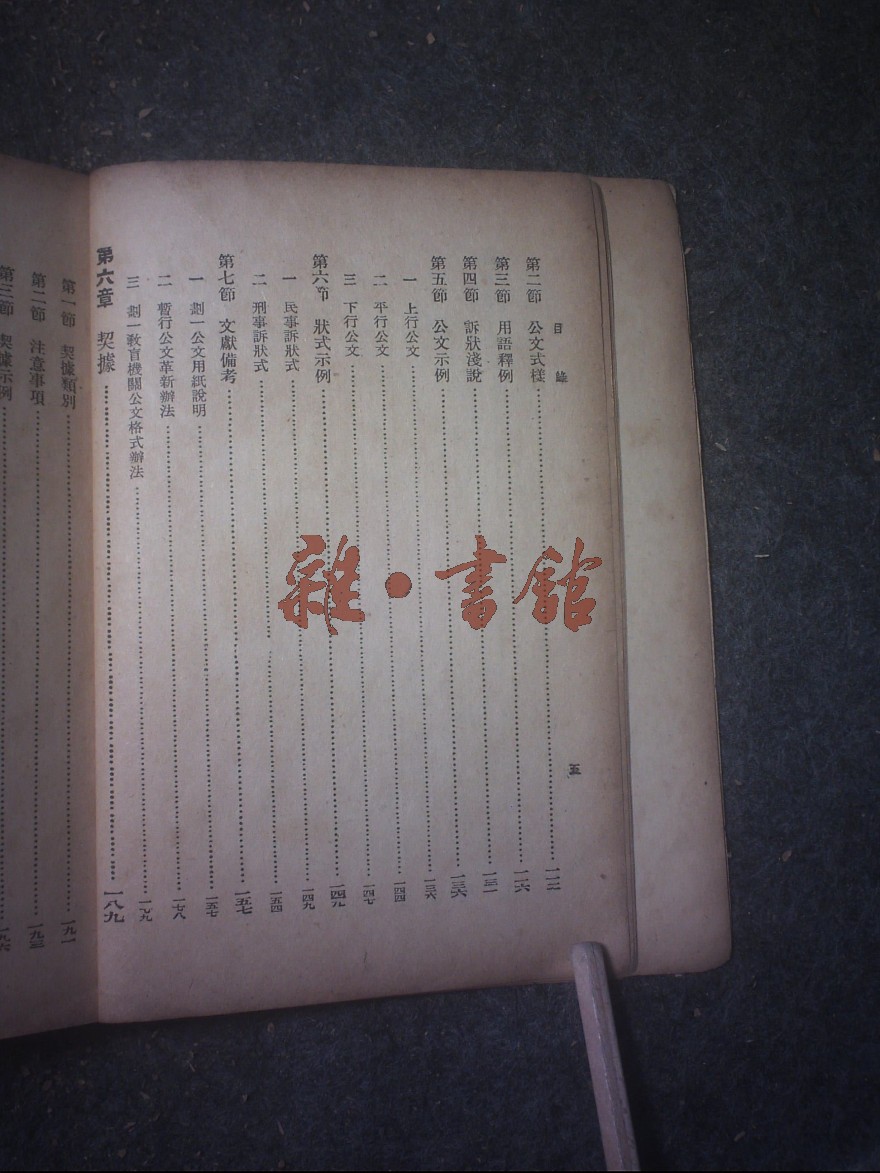 目錄
五
第二節 公文式樣……一一二
第三節 用語釋例……一一六
第四節 訴狀淺說……一三一
第五節 公文示例……一三六
一 上行公文……一三六
二 平行公文……一四四
三 下行公文……一四七
第六節 狀式示例……一四九
一 民事訴狀式……一四九
二 刑事訴狀式……一五四
第七節 文獻備考……一五七
一 劃一公文用紙說明……一五七
二 暫行公文革新辦法……一七八
三 劃一教育機關公文格式辦法……一七九
第六章 契據……一八九
第一節 契據類別……一九一
第二節 注意事項……一九三
第三節 契據示例……一九六
雜·書館